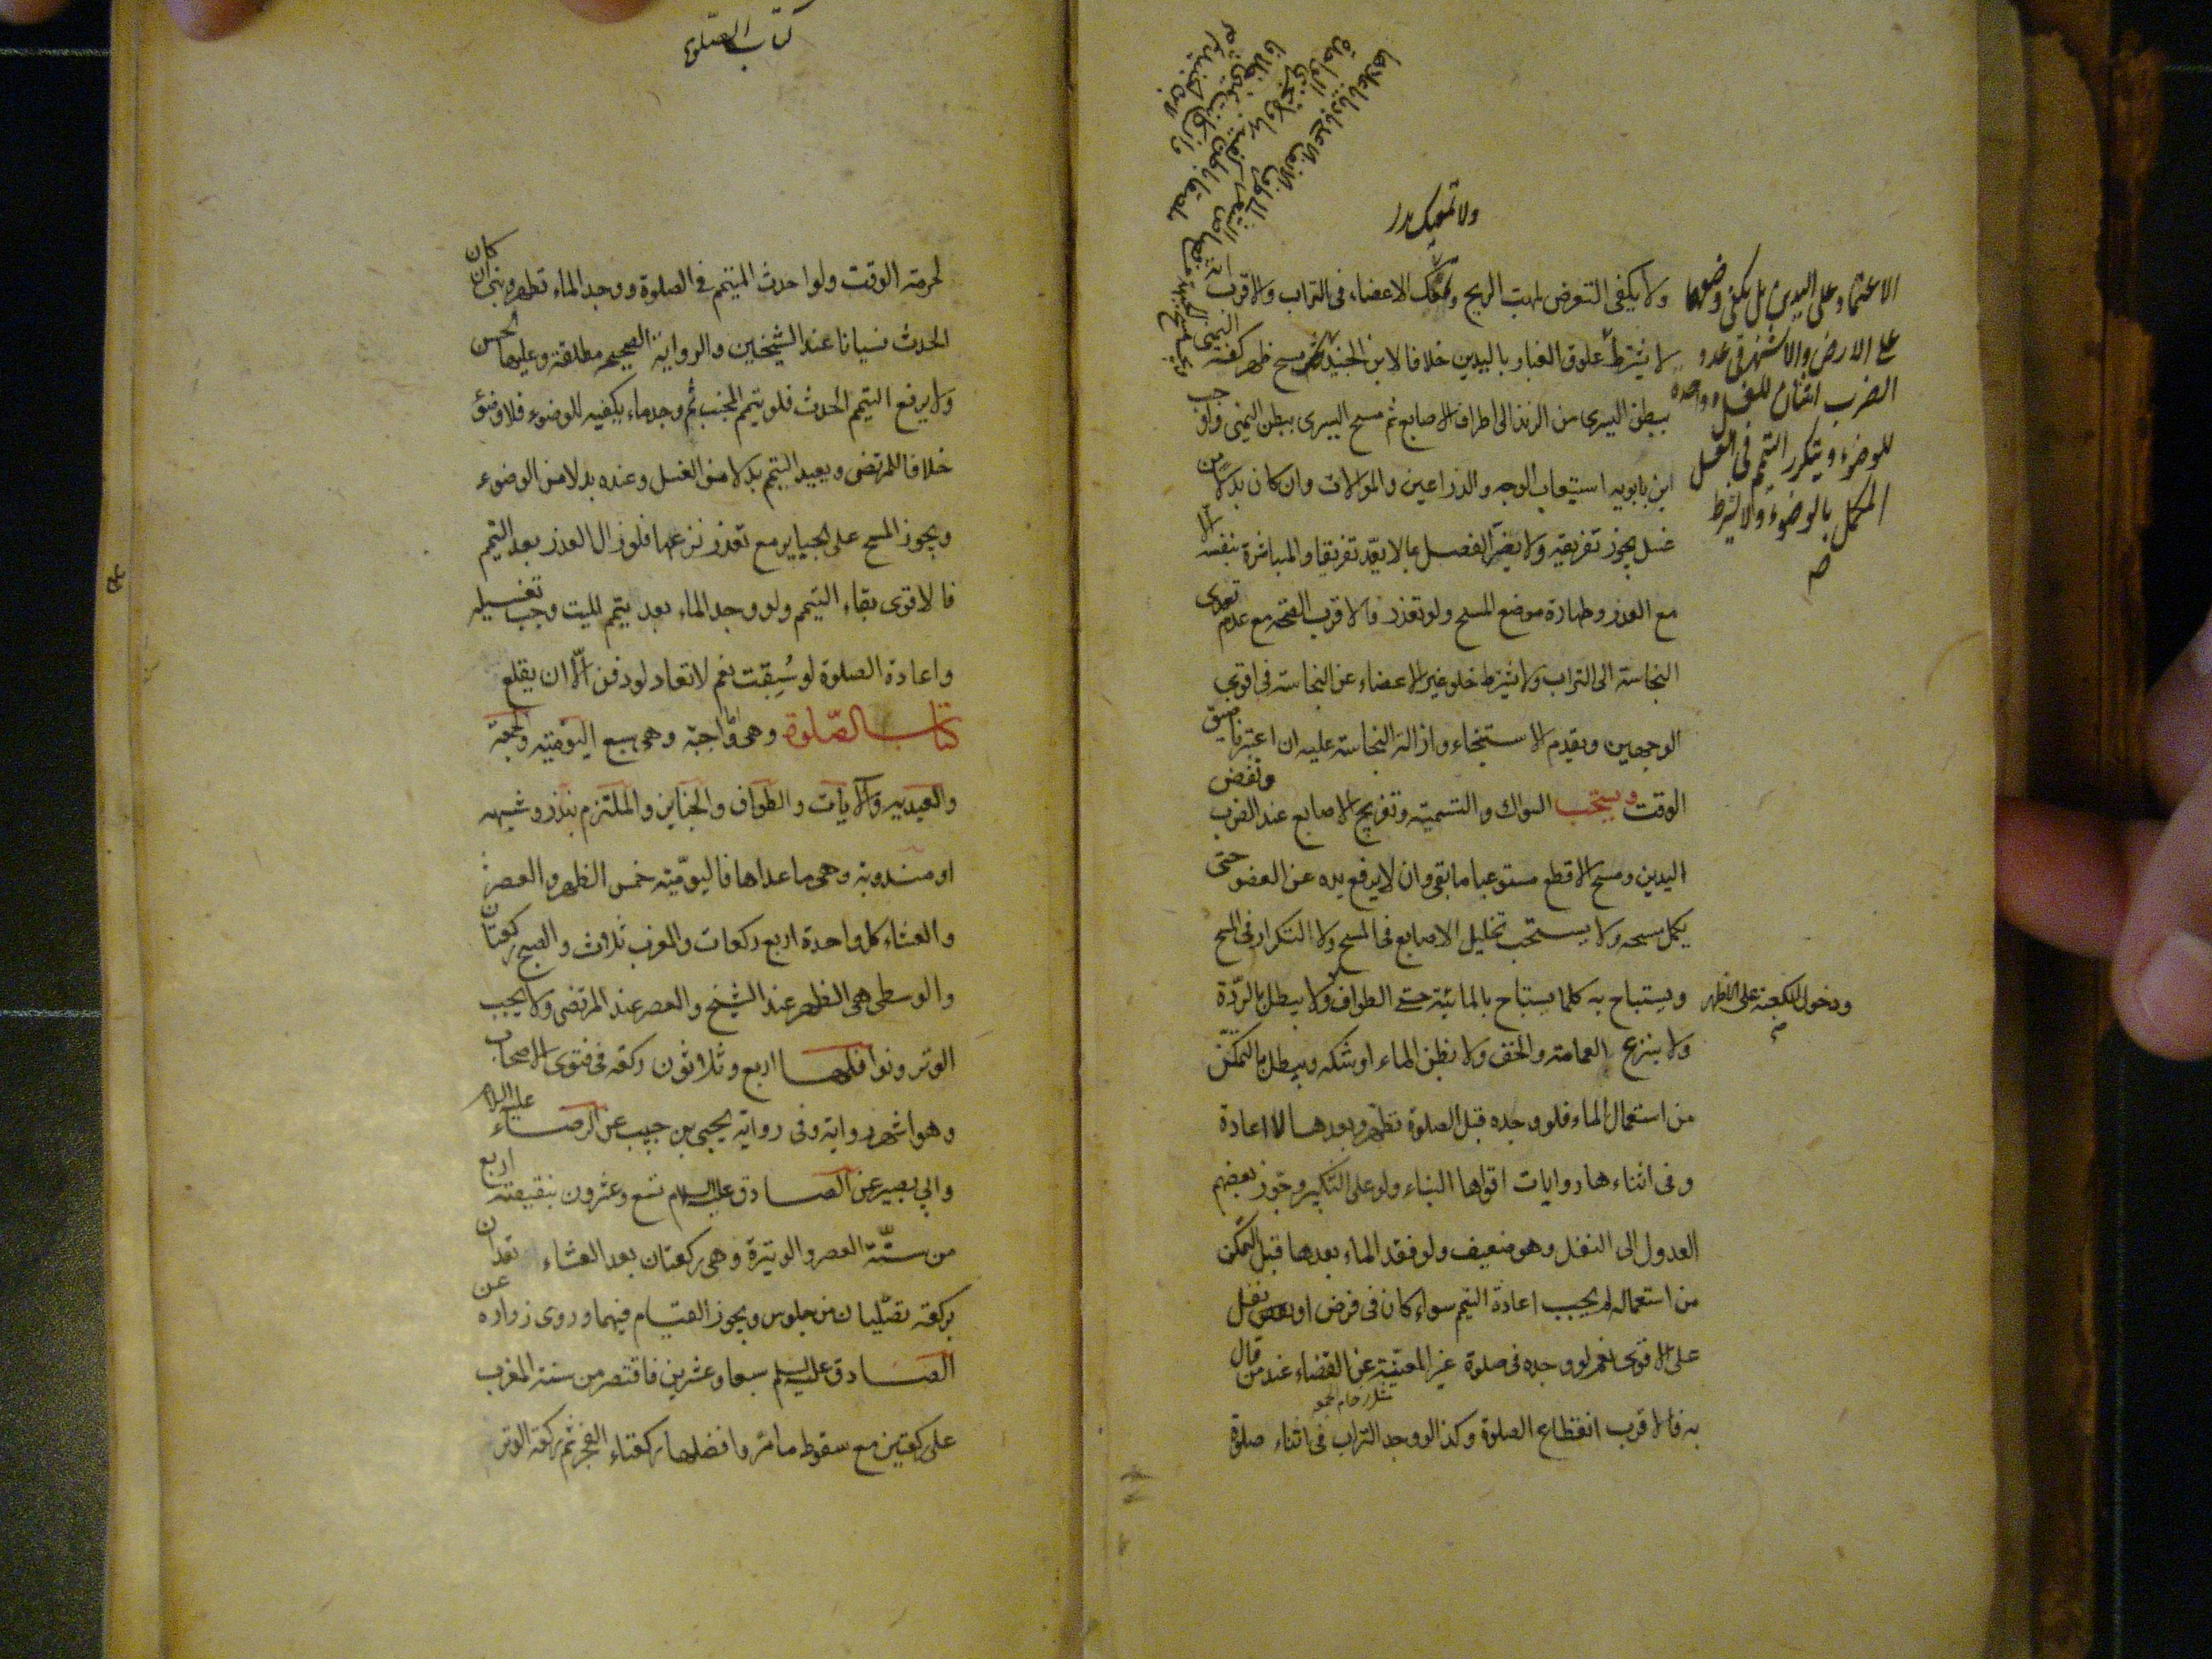 ولا تمعيك بدن
ولا يكفى التعرض لمهب الريح وتمعك الاعضاء فى التراب والاقرب انه
لا يشترط علوق الغبار باليدين خلافا لابن الجنيد ثم مسح ظهر كفه اليمنى
ببطن اليسرى من الزند الى اطراف الاصابع ثم مسح اليسرى ببطن اليمنى واوجب
ابن بابويه استيعاب الوجه والذراعين والموالات وان كان بدلا من
غسل يجوز تفريقه ولا يضر الفصل بما لا يعد تفريقا والمباشرة بنفسه الا
مع العذر وطهارة موضع المسح ولو تعذر فالاقرب الصحة مع عدم تعدى
النجاسة الى التراب ولا يشترط خلو غير الاعضاء عن النجاسة فى اقوى
الوجهين ويقدم الاستنجاء وازالة النجاسة عليه ان اعتبرنا ضيق
الوقت ويستحب السواك والتسمية وتفريج الاصابع عند الضرب ونفض
اليدين ومسح الاقطع مستوعبا ما بقى وان لا يرفع يده عن العضو حتى
يكمل مسحه ولا يستحب تخليل الاصابع فى المسح ولا التكرار فى المسح
ويستباح به كلما يستباح بالمائية حتى الطواف ولا يبطل بالردة
ولا بنزع العمامة والخف ولا بظن الماء او شكه ويبطل بالتمكن
من استعمال الماء فلو وجده قبل الصلوة تطهر وبعدها لا اعادة
وفى اثناءها روايات اقواها البناء ولو على التكبير وجوز بعضهم
العدول الى النفل وهو ضعيف ولو فقد الماء بعدها قبل التمكن
من استعماله لم يجب اعادة التيمم سواء كان فى فرض او نفل
على الاقوى نعم لو وجده فى صلوة غير المغنية عن القضاء عند من قال
به فالاقرب انقطاع الصلوة وكذا لو وجد التراب فى اثناء صلوة
الاعتماد على اليدين بل يكفى وضعها
على الارض والاشهر فى عدد
الضرب اثنان للغسل وواحدة
للوضوء ويتكرر التيمم فى الغسل
المكمل بالوضوء ولا يشترط
ودخول الكعبة على الاظهر
كتاب الصلوة
لحرمة الوقت ولو احدث المتيمم فى الصلوة ووجد الماء تطهر وبنى ان كان
الحدث نسيانا عند الشيخين والرواية الصحيحة مطلقة وعليها الحسن
ولا يرفع التيمم الحدث فلو تيمم المجنب ثم وجد ماء يكفيه للوضوء فلا وضوء
خلافا للمرتضى ويعيد التيمم بدلا من الغسل وعنده بدلا من الوضوء
ويجوز المسح على الجباير مع تعذر نزعها فلو زال العذر بعد التيمم
فالاقوى بقاء التيمم ولو وجد الماء بعد تيمم الميت وجب تغسيله
واعادة الصلوة لو سبقت نعم لا تعاد لو دفن الا ان يقلع
كتاب الصلوة وهى اما واجبة وهى سبع اليومية والجمعة
والعيدين والايات والطواف والجنايز والملتزم بنذر وشبهه
او مندوبة وهى ما عداها فاليومية خمس الظهر والعصر
والعشاء كل واحدة اربع ركعات والمغرب ثلاث والصبح ركعتان
والوسطى هى الظهر عند الشيخ والعصر عند المرتضى ولا يجب
الوتر ونوافلها اربع وثلاثون ركعة فى فتوى الاصحاب
وهو اشهر رواية وفى رواية يحيى بن حبيب عن الرضاء عليه السلام
وابي بصير عن الصادق عليه السلام تسع وعشرون بنقيصة اربع
من ستة العصر والوتيرة وهى ركعتان بعد العشاء تعدان
بركعة تصليان من جلوس ويجوز القيام فيهما وروى زراره عن
الصادق عليه السلم سبعا وعشرين فاقتصر من سنة المغرب
على ركعتين مع سقوط ما مر وافضلها ركعتاء الفجر ثم ركعة الوتر